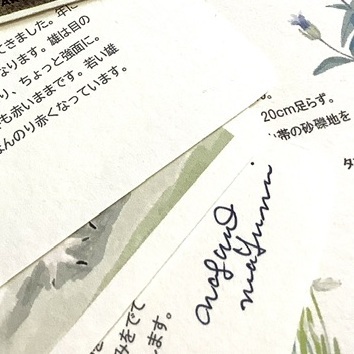 てきました。年に
なります。雄は目の
り、ちょっと強面に。
も赤いままです。若い雄
んのり赤くなっています。
20cm足らず。
帯の砂礫地を
nagano
mayumi
みをでて
ます。